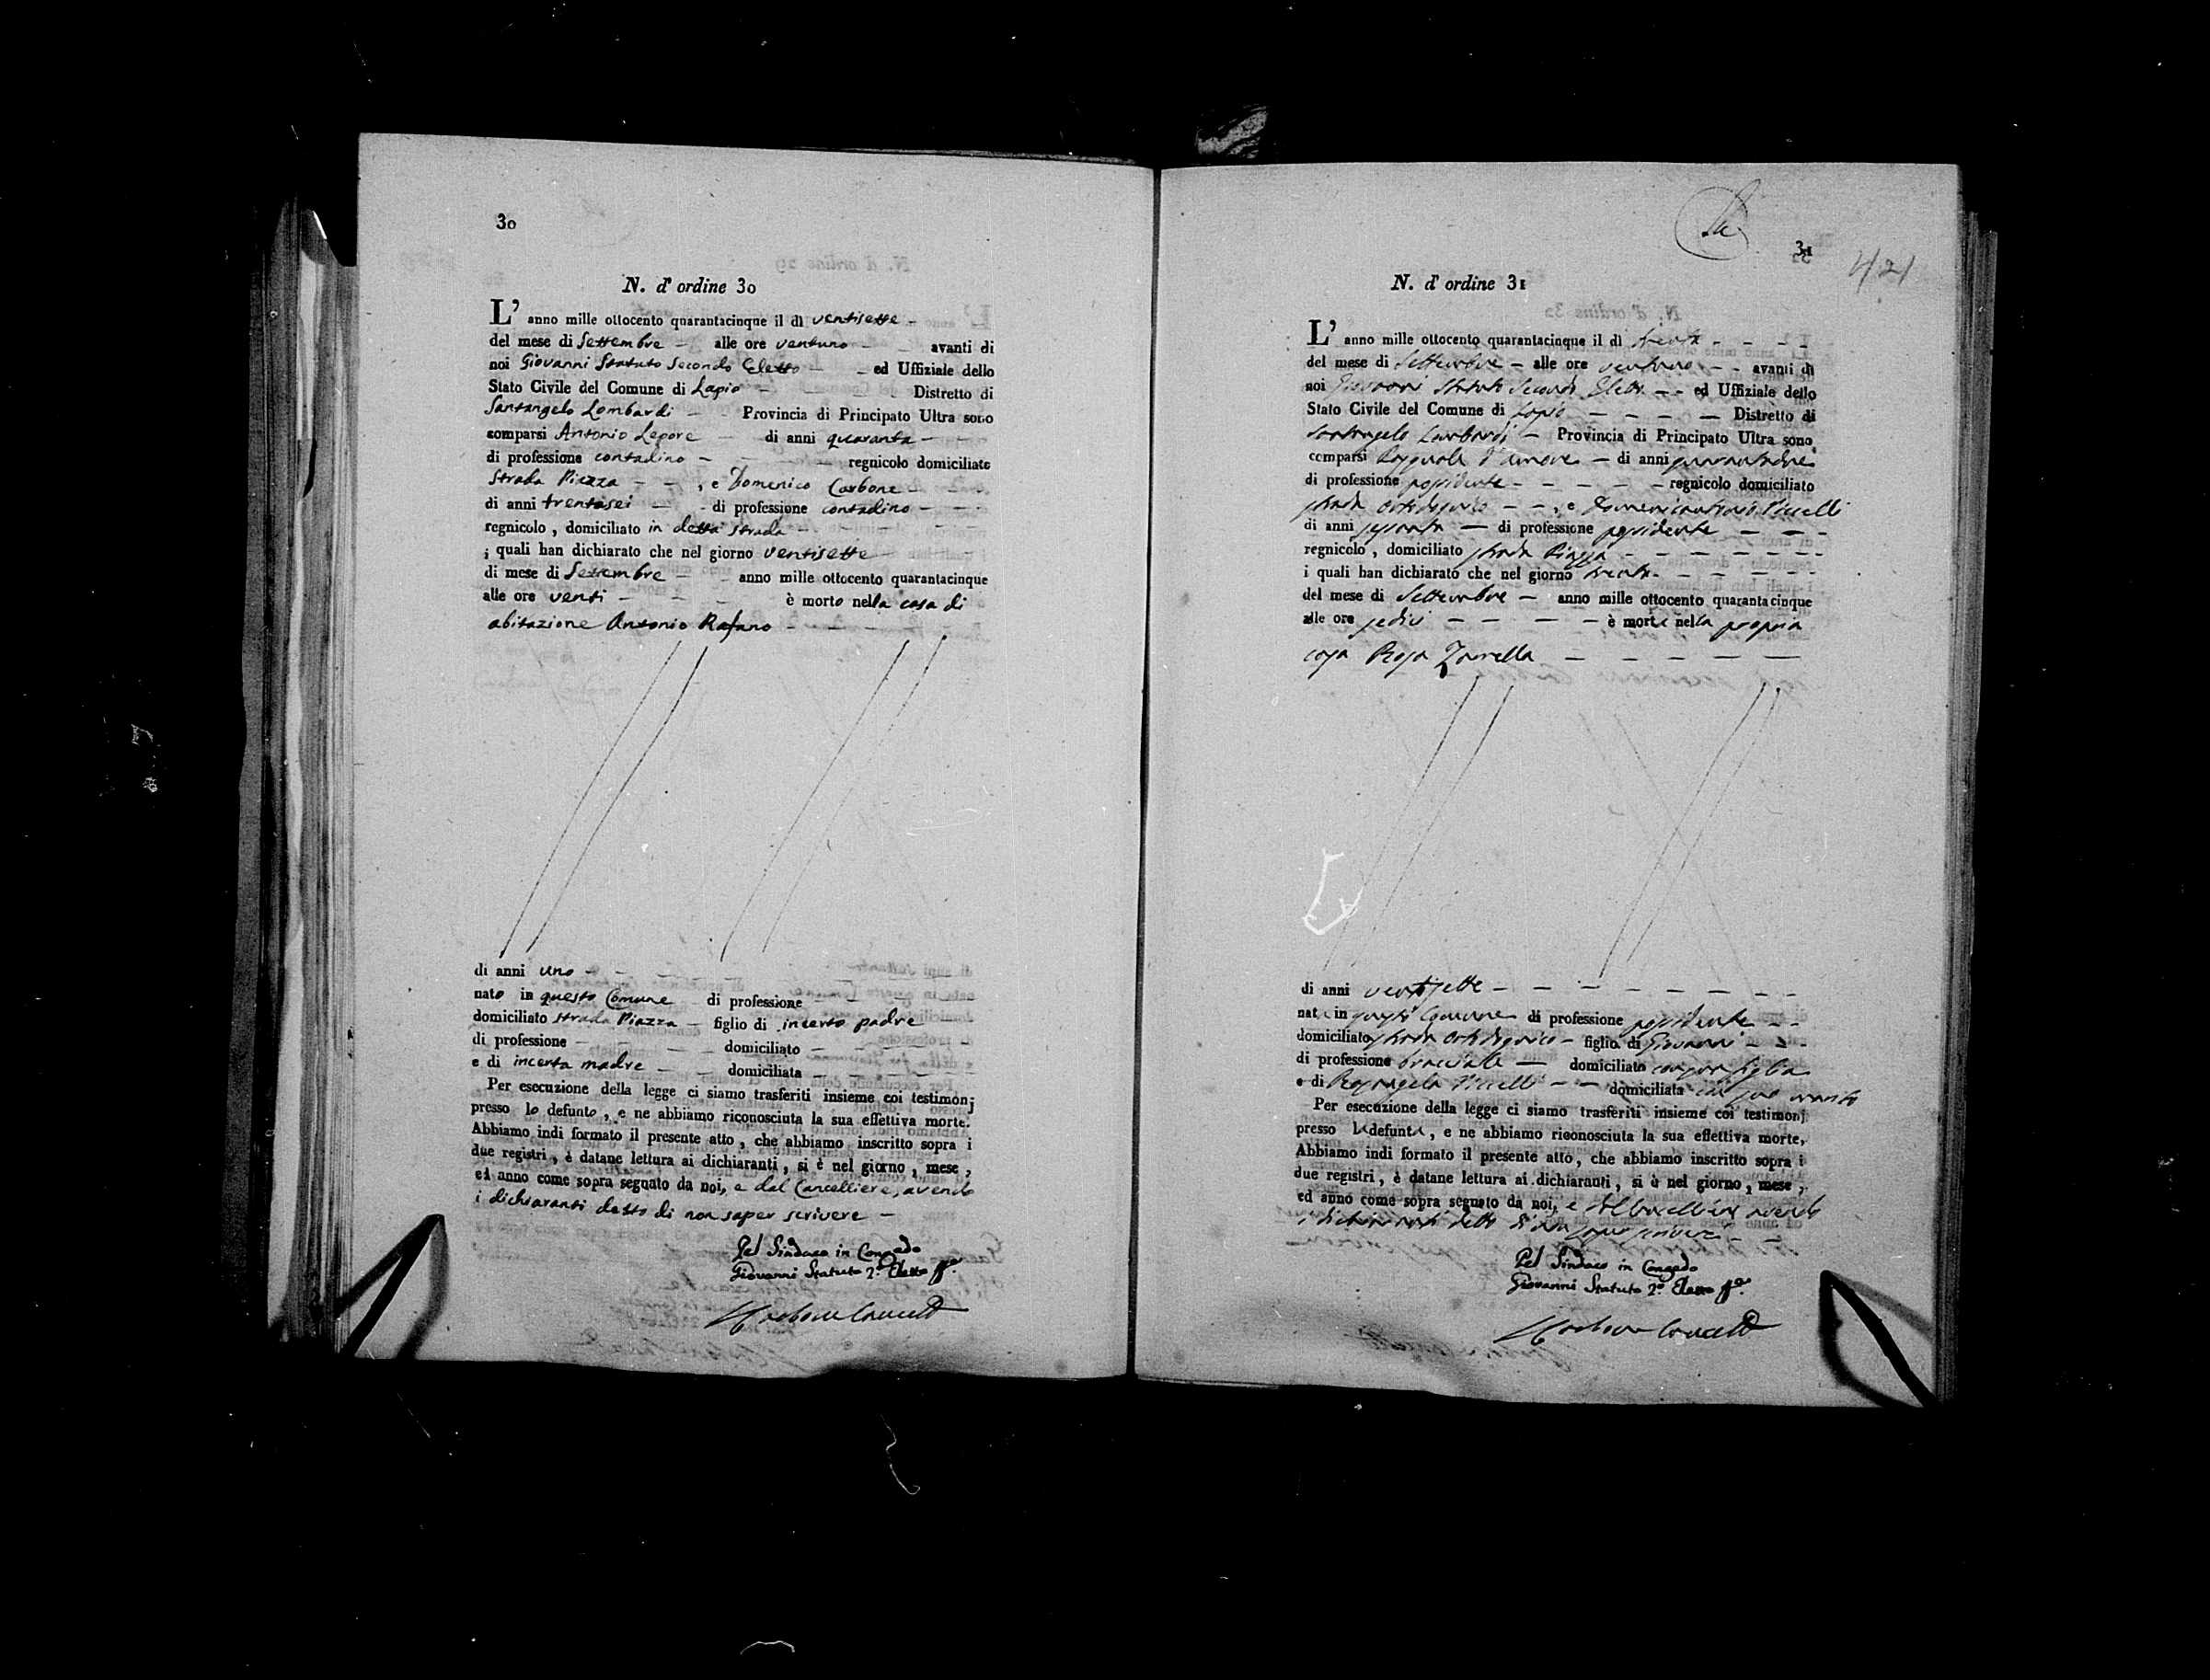 30
N. d' ordine 30
L' anno mille ottocento quarantacinque il dì ventisette -
del mese di Settembre - alle ore ventuno - - avanti di
noi Giovanni Statuto Secondo Eletto - - ed Uffiziale dello
Stato Civile del Comune di Lapio - Distretto di
Santangelo Lombardi - Provincia di Principato Ultra sono
comparsi Antonio Lepore - di anni quaranta -
di professione contadino - - - - regnicolo domiciliato
Strada Piazza - - , e Domenico Carbone - - -
di anni trentasei - - di professione contadino - - -
regnicolo , domiciliato in detta strada - - - -
i quali han dichiarato che nel giorno ventisette -
di mese di Settembre - - anno mille ottocento quarantacinque
alle ore venti - - - è morto nella casa di
abitazione Antonio Rafano - - - - -
di anni uno - - - - -
nato in questo Comune di professione - - -
domiciliato strada Piazza - figlio di incerto padre
di professione - - - - domiciliato - - - -
e di incerta madre - - domiciliata - - - -
Per esecuzione della legge ci siamo trasferiti insieme coi testimonj
presso lo defunto , e ne abbiamo riconosciuta la sua effettiva morte.
Abbiamo indi formato il presente atto , che abbiamo inscritto sopra i
due registri , e datane lettura ai dichiaranti , si è nel giorno , mese ,
ed anno come sopra segnato da noi, e dal Cancelliere, avendo
i dichiaranti detto di non saper scrivere -
Pel Sindaco in Congedo
Giovanni Statuto 2.º Eletto
31
421
N. d' ordine 31
L' anno mille ottocento quarantacinque il dì trenta - - - -
del mese di Settembre - alle ore ventuno - - avanti di
noi Giovanni Statuto Secondo Eletto - - ed Uffiziale dello
Stato Civile del Comune di Lapio - - - - Distretto di
Santangelo Lombardi - Provincia di Principato Ultra sono
comparsi Pasquale d'Amore - di anni quarantadue
di professione possidente - - - - - regnicolo domiciliato
strada - - , e Domenicantonio
di anni sessanta - di professione possidente - - -
regnicolo , domiciliato strada Piazza - - - - - -
i quali han dichiarato che nel giorno trenta - - - - -
del mese di Settembre - anno mille ottocento quarantacinque
alle ore sedici - - - - è morta nella propria
casa Rosa Zarrella - - - - -
di anni ventisette - - - - - - - -
nata in questo Comune di professione possidente - -
domiciliato strada - figlia di Giovanni - - -
di professione bracciale - domiciliato con sua figlia
e di Rosangela - - domiciliata col suo marito
Per esecuzione della legge ci siamo trasferiti insieme coi testimonj
presso la defunta , e ne abbiamo riconosciuta la sua effettiva morte,
Abbiamo indi formato il presente atto, che abbiamo inscritto sopra i
due registri , e datane lettura ai dichiaranti , si è nel giorno , mese ,
ed anno come sopra segnato da noi, e dal Cancelliere avendo
i dichiaranti detto di non saper scrivere - -
Pel Sindaco in Congedo
Giovanni Statuto 2.º Eletto